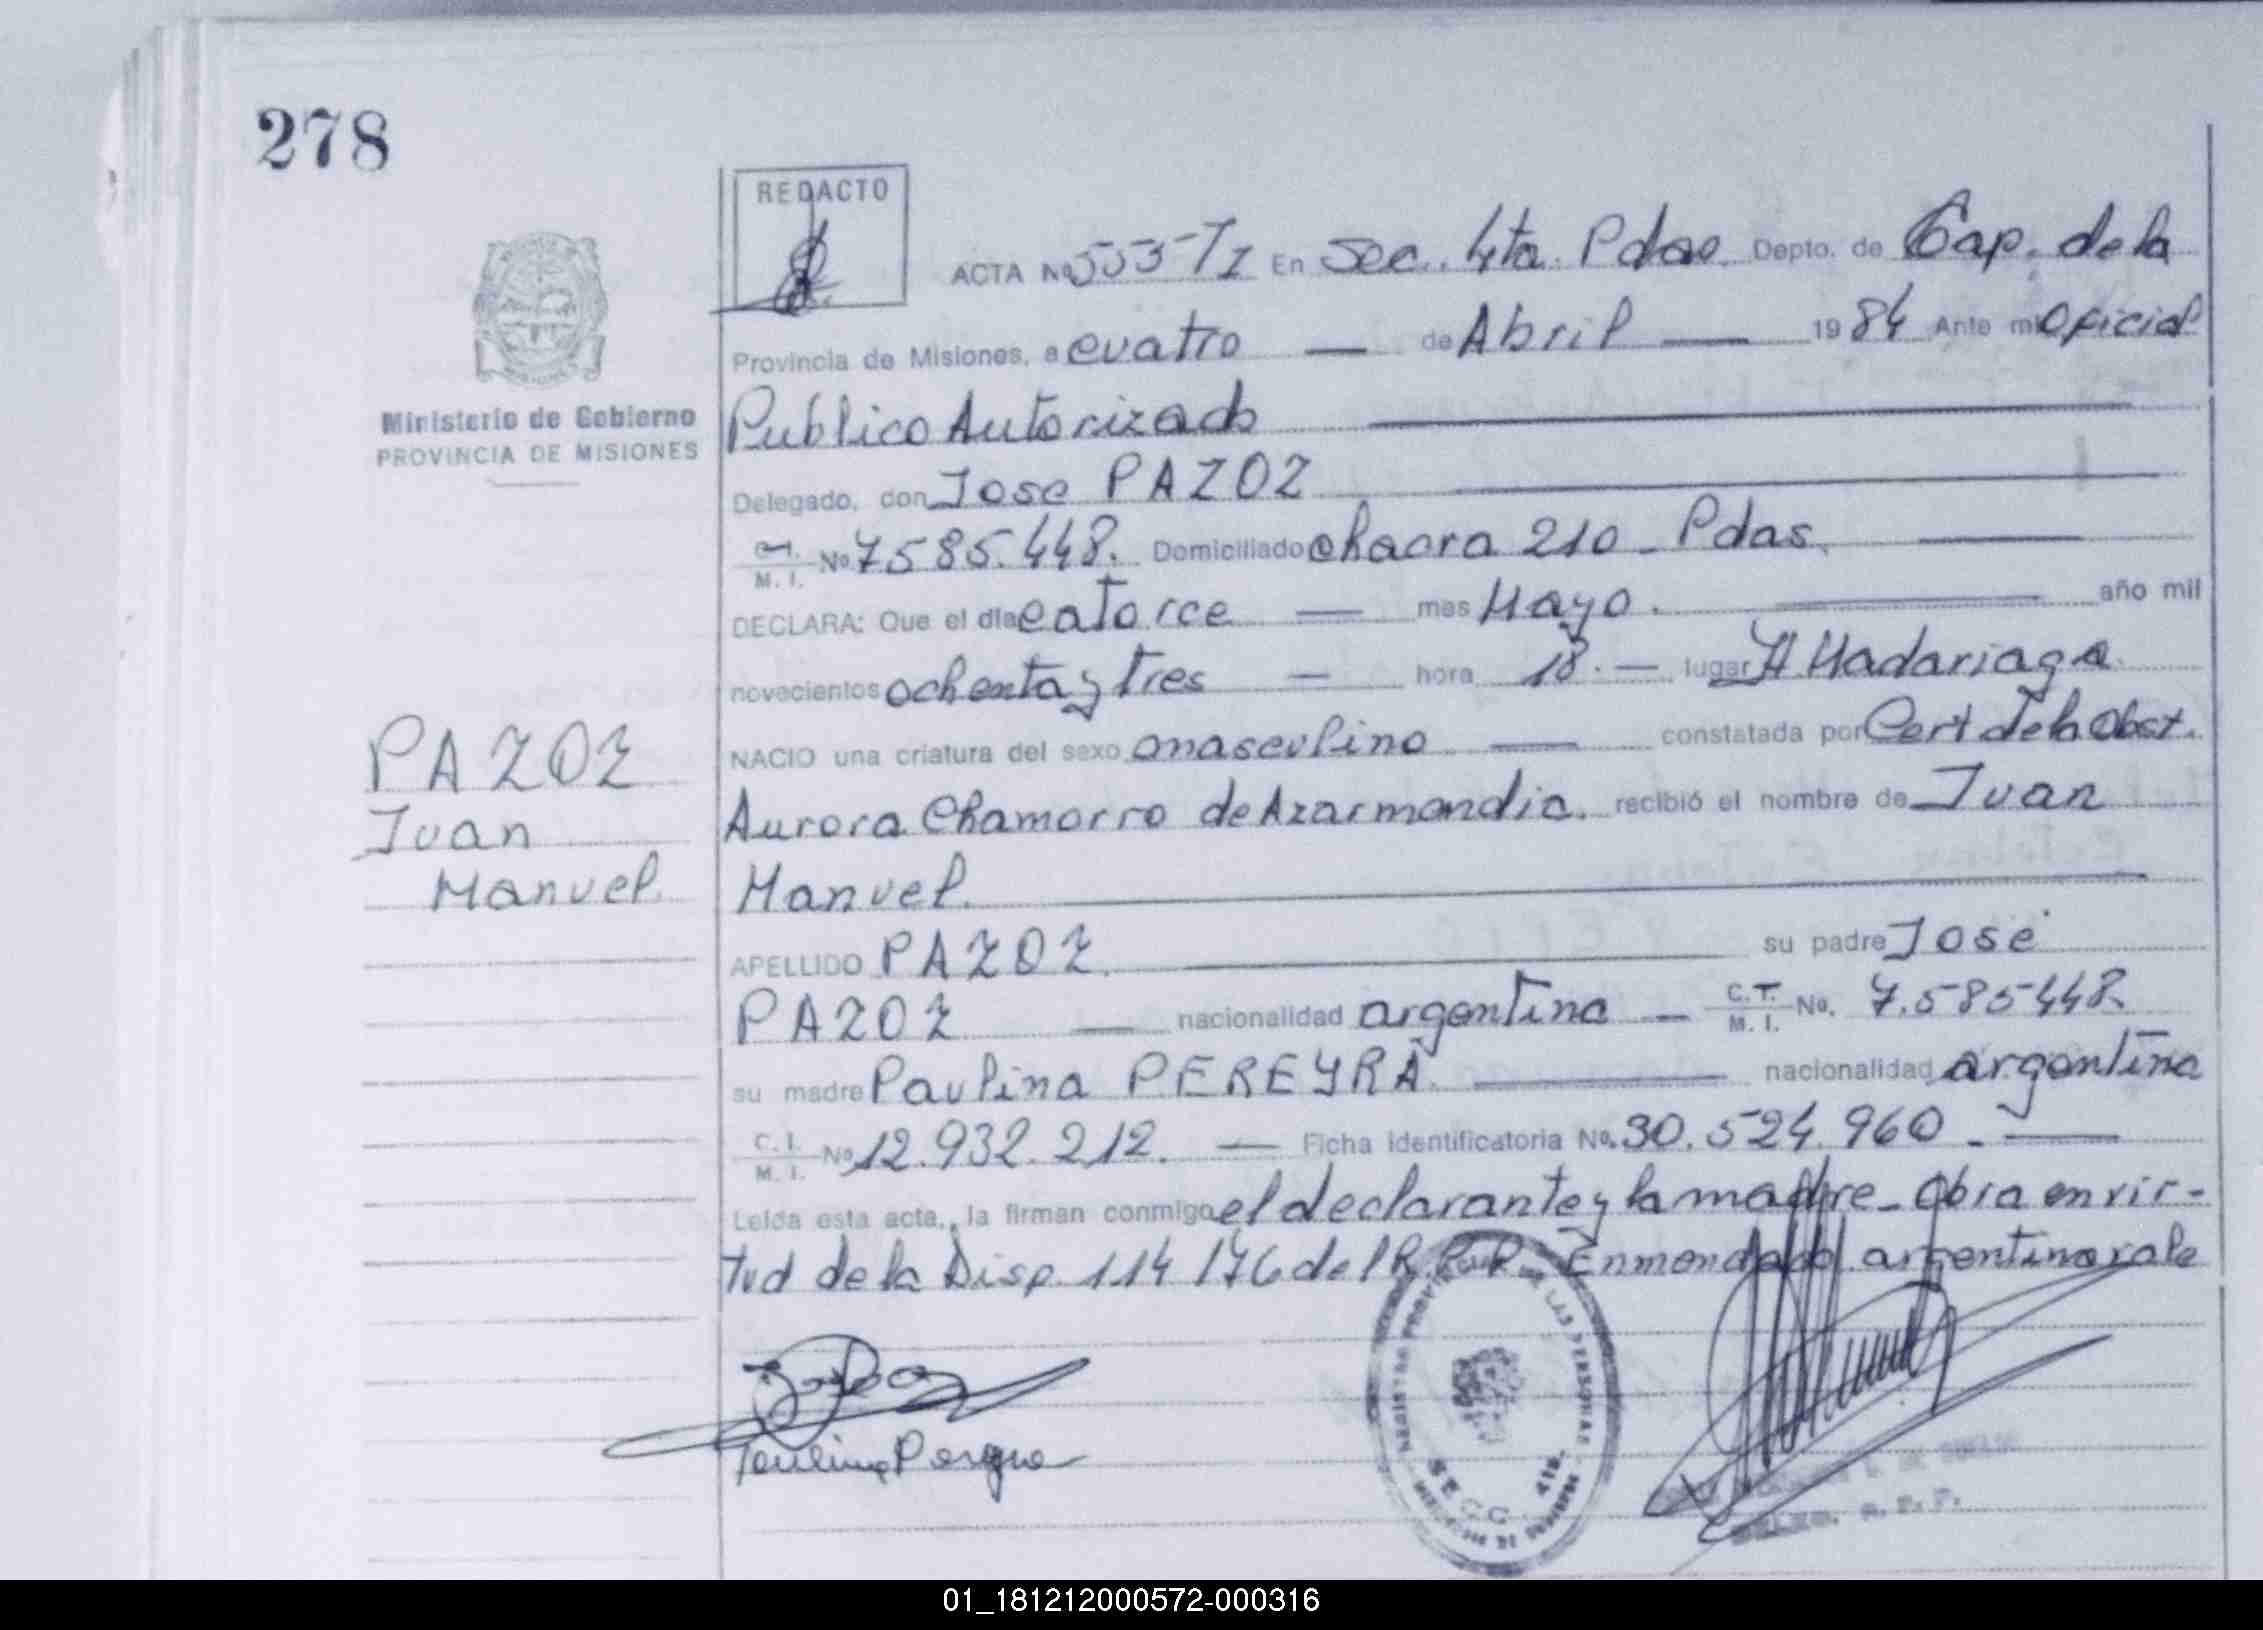 278
REDACTO
ACTA No 553-TI En Sec. 4ta. Pdas. Depto. de Cap. de la
Provincia de Misiones, a cuatro — de Abril — 1984 Ante mi Oficial
Publico Autorizado
Ministerio de Gobierno
PROVINCIA DE MISIONES
Delegado, don Jose PAZOZ
M. I. No 7585.448. Domiciliado chacra 210 - Pdas.
DECLARA: Que el dia catorce — mes Mayo. año mil
novecientos ochenta y tres — hora 18. — lugar H. Madariaga
NACIO una criatura del sexo masculino — constatada por Cert de la Obst.
Aurora Chamorro de Azarmendia. recibió el nombre de Juan
Manuel.
PAZOZ
Juan
Manuel.
APELLIDO PAZOZ. su padre José
PAZOZ — nacionalidad argentina — C.I. M. I. No. 7.585448.
su madre Paulina PEREYRA. — nacionalidad argentina
C. I. M. I. No 12.932.212. — Ficha identificatoria No. 30.524.960 - —
Leida esta acta, la firman conmigo el declarante y la madre - Obra en vir-
tud de la Disp. 114/76 del R.P.P. Enmendado argentina vale
Paulina Pereyra
REGISTRO PROVINCIAL DE LAS PERSONAS
SECC. 4ta.
MINISTERIO DE GOBIERNO
01_181212000572-000316